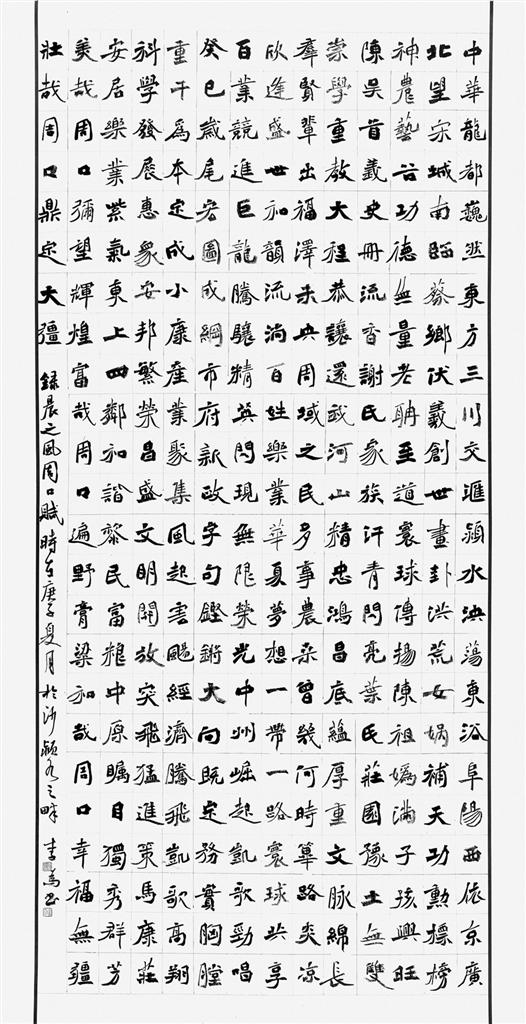 中華龍都巍然東方三川交滙潁水泱蕩東浴阜陽西依京廣
北望宋城南臨蔡鄉伏羲創世畫卦洪荒女媧補天功勳標榜
神農藝谷功德無量老聃至道寰球傳揚陳祖媯滿子孫興旺
陳吳首義史冊流香謝氏家族汗青閃亮葉氏莊園豫土無雙
崇學重教大程恭讓還我河山精忠鴻昌底蘊厚重文脈綿長
羣賢輩出福澤未央周域之民多事農桑曾幾何時篳路炎涼
欣逢盛世和韻流淌百姓樂業華夏夢想一帶一路寰球共享
百業競進巨龍騰驤精英閃現無限榮光中州崛起凱歌勁唱
癸巳歲尾宏圖成綱市府新政字句鏗鏘大向既定務實胸膛
重干為本定成小康產業聚集風起雲颺經濟騰飛凱歌高翔
科學發展惠眾安邦繁榮昌盛文明開放突飛猛進策馬康莊
安居樂業紫氣東上四鄰和諧黎民富糧中原矚目獨秀群芳
美哉周口彌望輝煌富哉周口遍野膏粱和哉周口幸福無疆
壯哉周口鼎定大疆 錄晨之風周口賦時在庚子夏月於沙潁水之畔 李 書